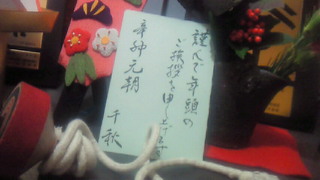 謹んで年頭の
ご挨拶を申し上げます
元朝
千秋